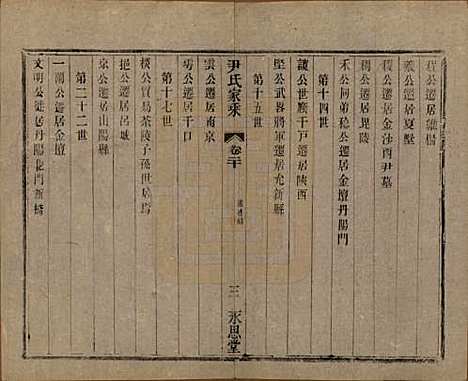 公遷居維楊
羲公遷居夏墅
稷公遷居金沙西尹墓
穆公遷居毘陵
禾公同弟稳公遷居金壇丹陽門
第十四世
讓公世廕千戶遷居陝西
堅公武畧將軍遷居允新縣
第十五世
尹氏家乘
卷二十
三
永思堂
雲公遷居南京
公遷居干口
第十七世
公貿易茶陵子孫世居焉
挹公遷居呂城
公遷居山陽縣
第二十二世
一蘭公遷居金壇
文明公徙居丹陽龍門新橋